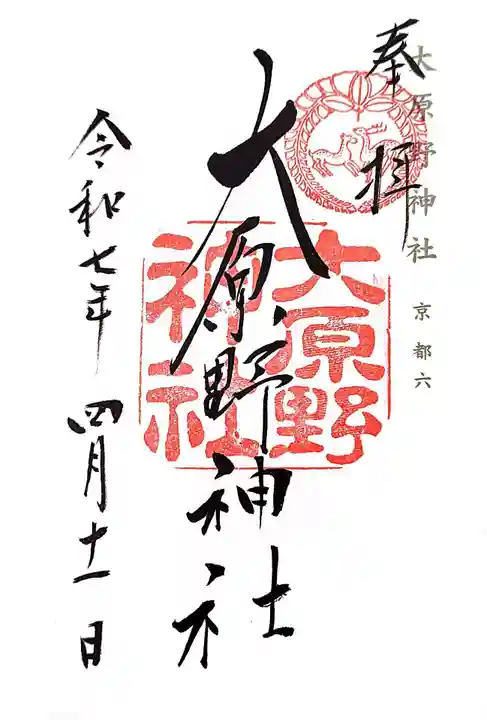 奉拝
大原野神社
京都六
大原野神社
大原野神社
令和七年四月十一日